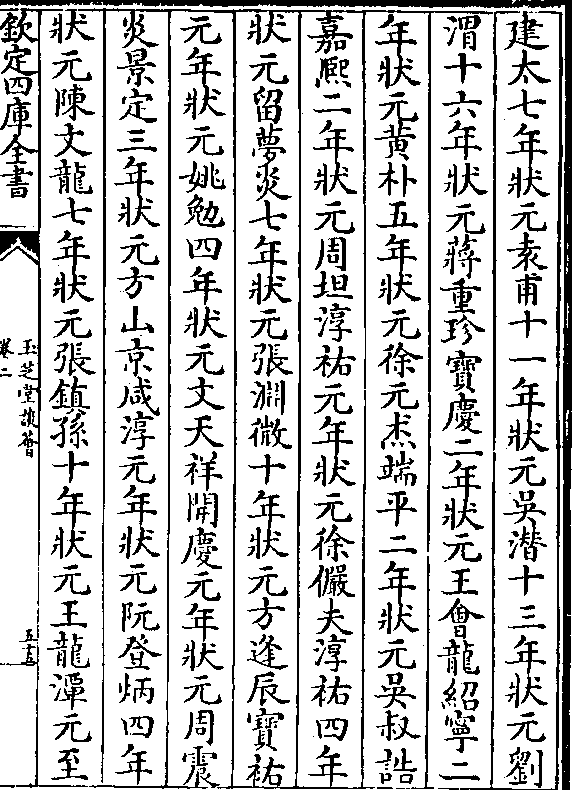 建太七年狀元袁甫十一年狀元吳潛十三年狀元劉
渭十六年狀元蔣重珍寶慶二年狀元王會龍紹寧二
年狀元黄朴五年狀元徐元杰端平二年狀元吳叔誥
嘉熈二年狀元周坦淳祐元年狀元徐儼夫淳祐四年
狀元留夢炎七年狀元張淵微十年狀元方逢辰寶祐
元年狀元姚勉四年狀元文天祥開慶元年狀元周震
炎景定三年狀元方山京咸淳元年狀元阮登炳四年
狀元陳文龍七年狀元張鎮孫十年狀元王龍澤元至
欽定四庫全書
玉芝堂談薈
卷二
五十五